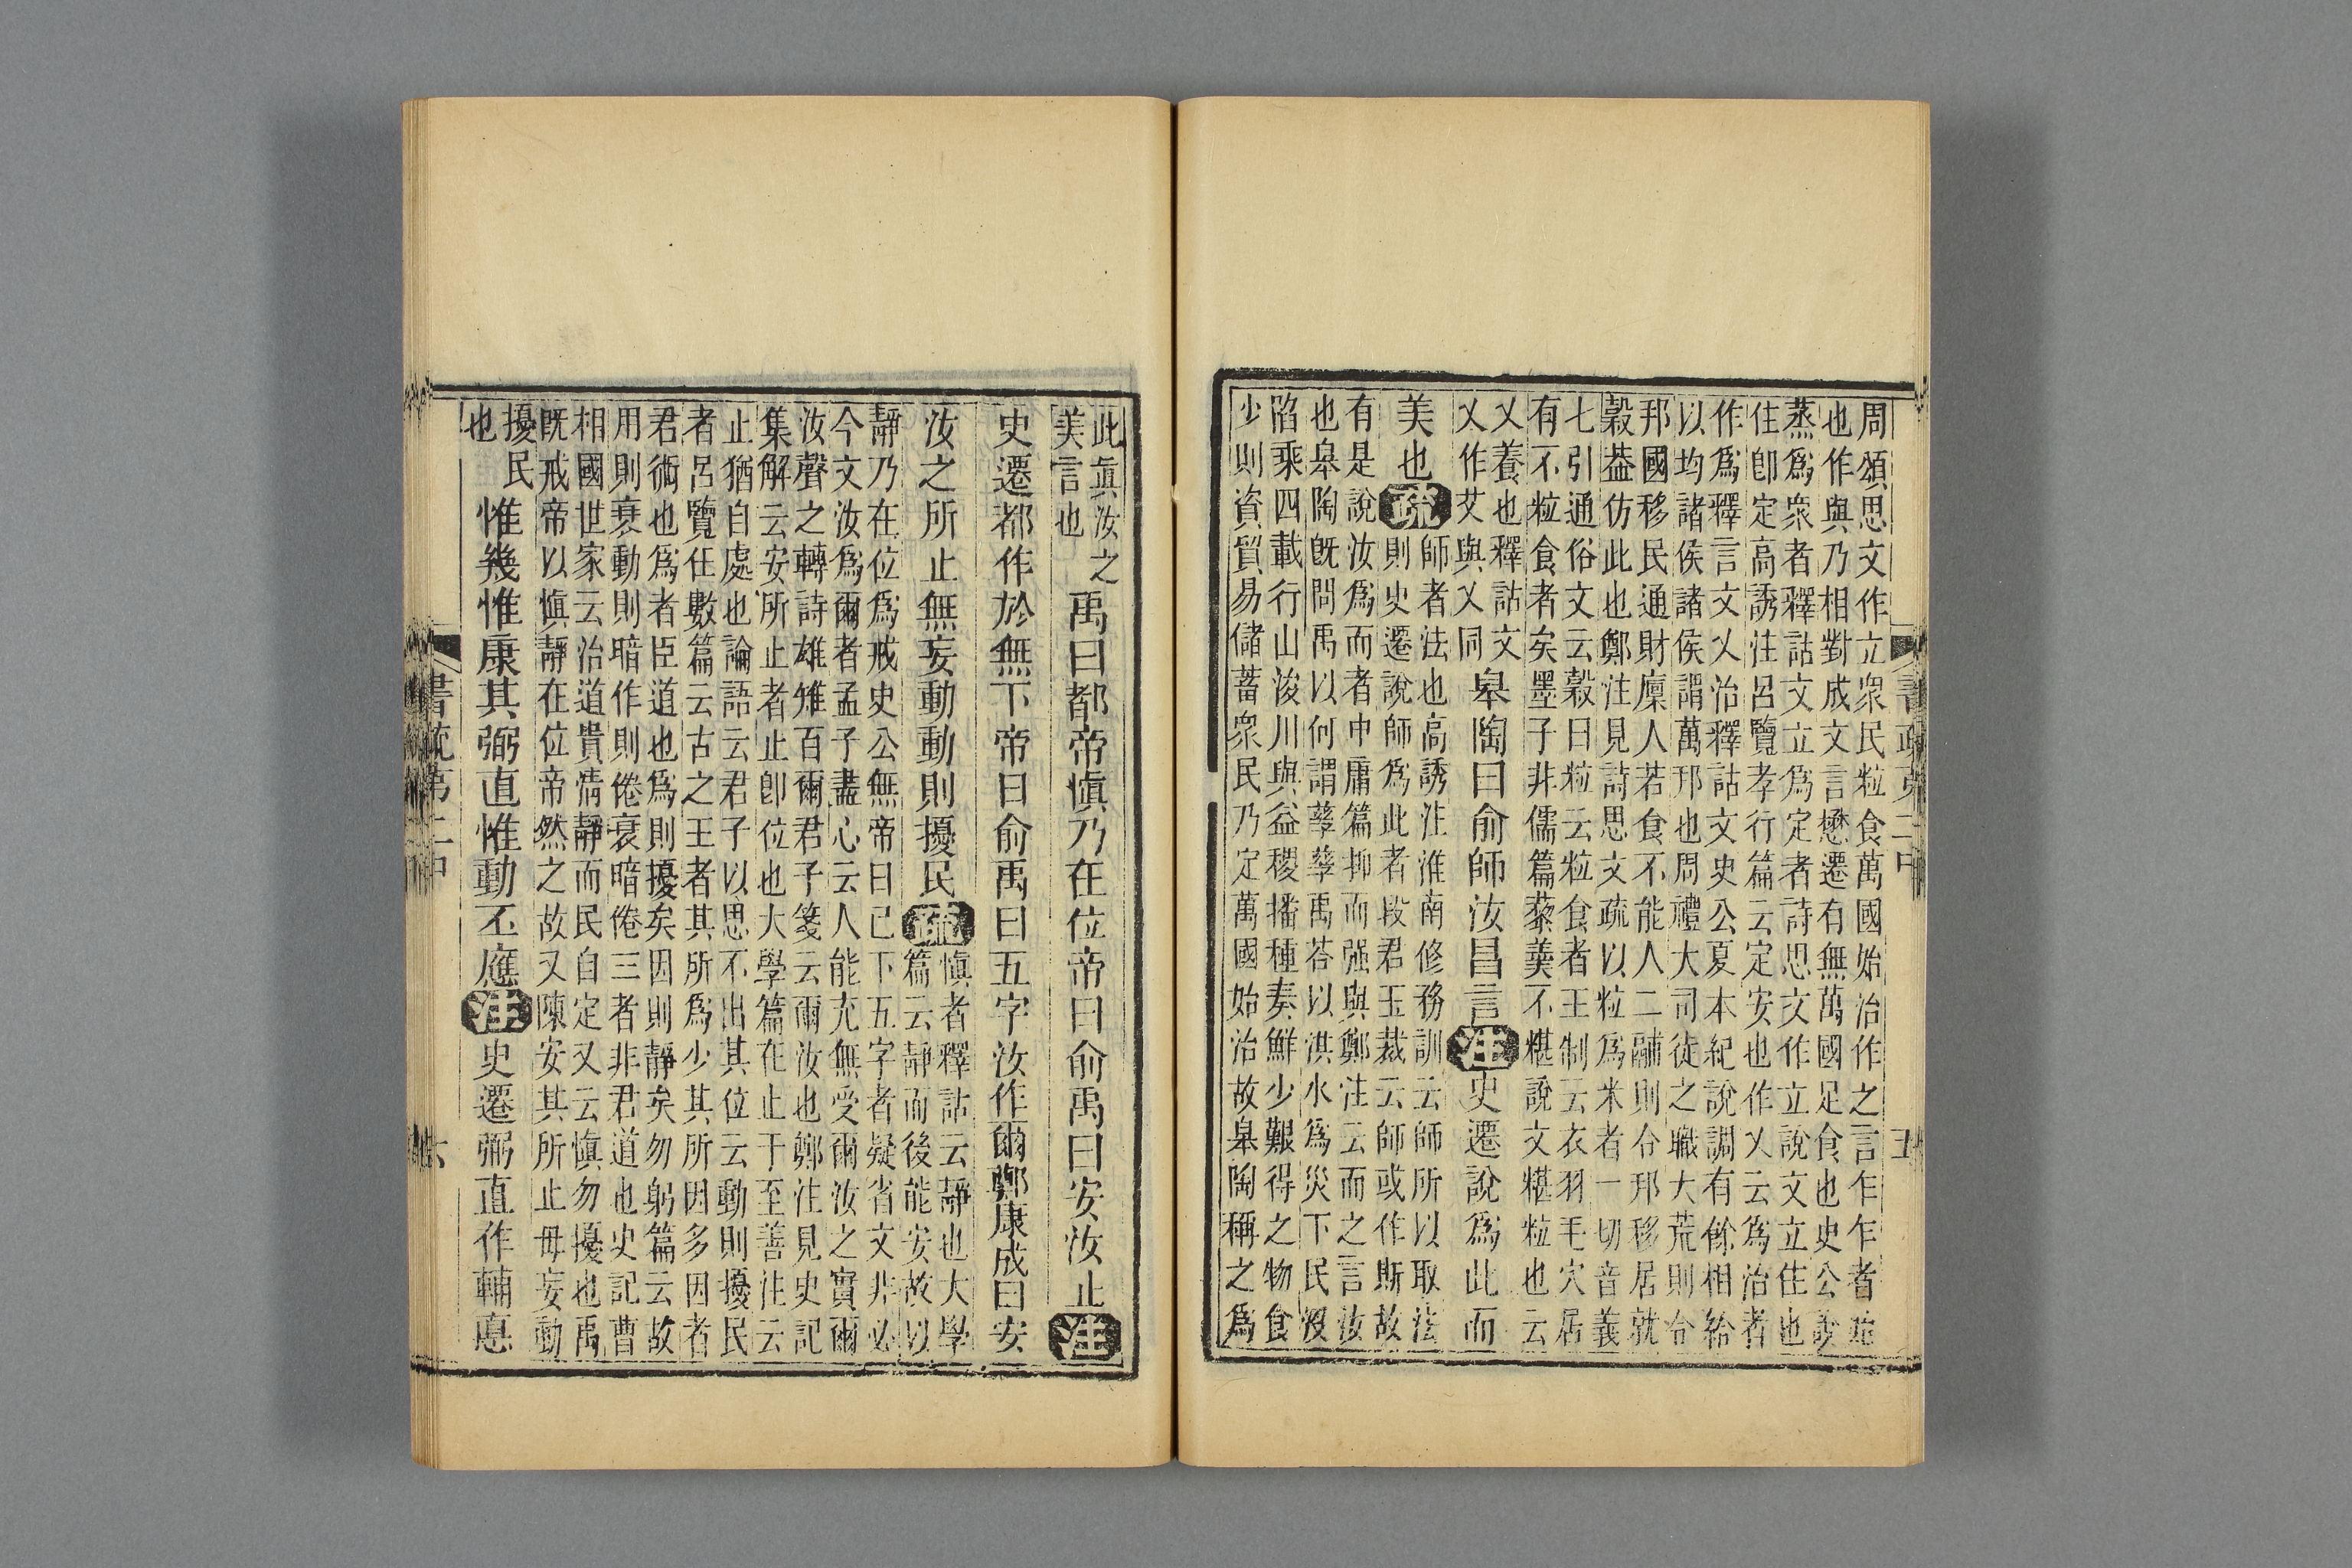 周頌思文作立眾民粒食萬國始治作之言乍乍者
也作與乃相對成文言懋遷有無萬國足食也史公說
蒸爲衆者釋詁文立爲定者詩思文作立說文立住也
住卽定高誘注呂覽孝行篇云定安也作乂云爲治者
作爲釋言文乂治釋詁文史公夏本紀說調有餘相給
以均諸侯諸侯謂萬邦也周禮大司徒之職大荒則令
邦國移民通財廩人若食不能人二鬴則令邦移民就
穀葢仿此也鄭注見詩思文疏以粒爲米者一切音義
七引通俗文云穀曰粒云粒食者王制云衣羽毛穴居
有不粒食者矣墨子非儒篇藜羹不糂說文糂粒也云
乂養也釋詁文
乂作艾與乂同
皋陶曰俞師汝昌言注史遷說爲此而
美也疏
師者法也高誘注淮南修務訓云師所以取法
則史遷說師爲此者段君玉裁云師或作斯故
有是說汝爲而者中庸篇抑而强與鄭注云而之言汝
也皋陶旣問禹以何謂孳孳禹荅以洪水爲災下民沒
陷乘四載行山浚川與益稷播種奏鮮少艱得之物食
少則資貿易儲蓄衆民乃定萬國始治故皋陶稱之爲
書疏第二中
五
此眞汝之
美言也
禹曰都帝愼乃在位帝曰俞禹曰安汝止注
史遷都作於無下帝曰俞禹曰五字汝作爾鄭康成曰安
汝之所止無妄動動則擾民疏
愼者釋詁云靜也大學
篇云靜而後能安故以
靜乃在位爲戒史公無帝曰已下五字者疑省文非必
今文汝爲爾者孟子盡心云人能充無受爾汝之實爾
汝聲之轉詩雄雉百爾君子箋云爾汝也鄭注見史記
集解云安所止者止卽位也大學篇在止于至善注云
止猶自處也論語云君子以思不出其位云動則擾民
者呂覽任數篇云古之王者其所爲少其所因多因者
君術也爲者臣道也爲則擾矣因則靜矣勿躬篇云故
用則衰動則暗作則倦衰暗倦三者非君道也史記曹
相國世家云治道貴淸靜而民自定又云愼勿擾也禹
旣戒帝以愼靜在位帝然之故又陳安其所止毋妄動
擾民
也
惟幾惟康其弼直惟動丕應注史遷弼直作輔悳
書疏第二中
六